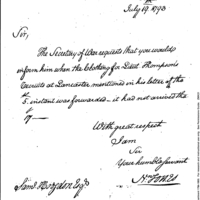 July 19th 1793
Sir,
The Secretary of War requests that you would
inform him when the Cloathing for Lieut Thompson's
Recruits at Lancaster mentioned in his letter of the
5. instant was forwarded — it had not arrived the
17th —
With great respect
I am
Sir
Your humble Servant
Saml Hodgdon Esqr.